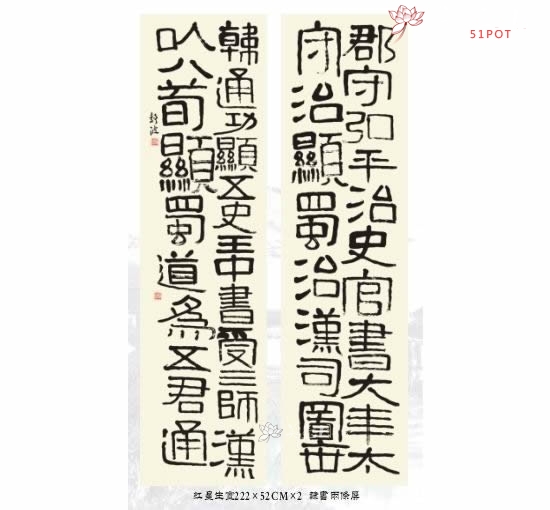 51POT
郡守弘平治史官書太年太
守治顯蜀治漢司圖世
韩通功顯五史王中書受三師漢
以八苟顯蜀道為五君通
红星生宣222×52CM×2 隸書兩條屏